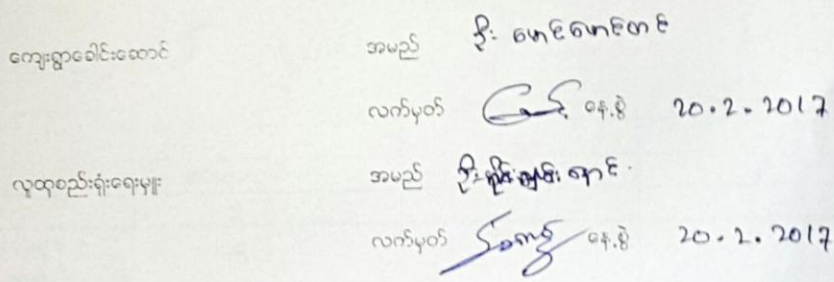 ကျေးရွာခေါင်းဆောင် အမည် ဦး မောင်မောင်တင်
လက်မှတ် နေ့စွဲ 20.2.2017
လူထုစည်းရုံးရေးမှူး အမည် ဦး
လက်မှတ် နေ့စွဲ 20.2.2017